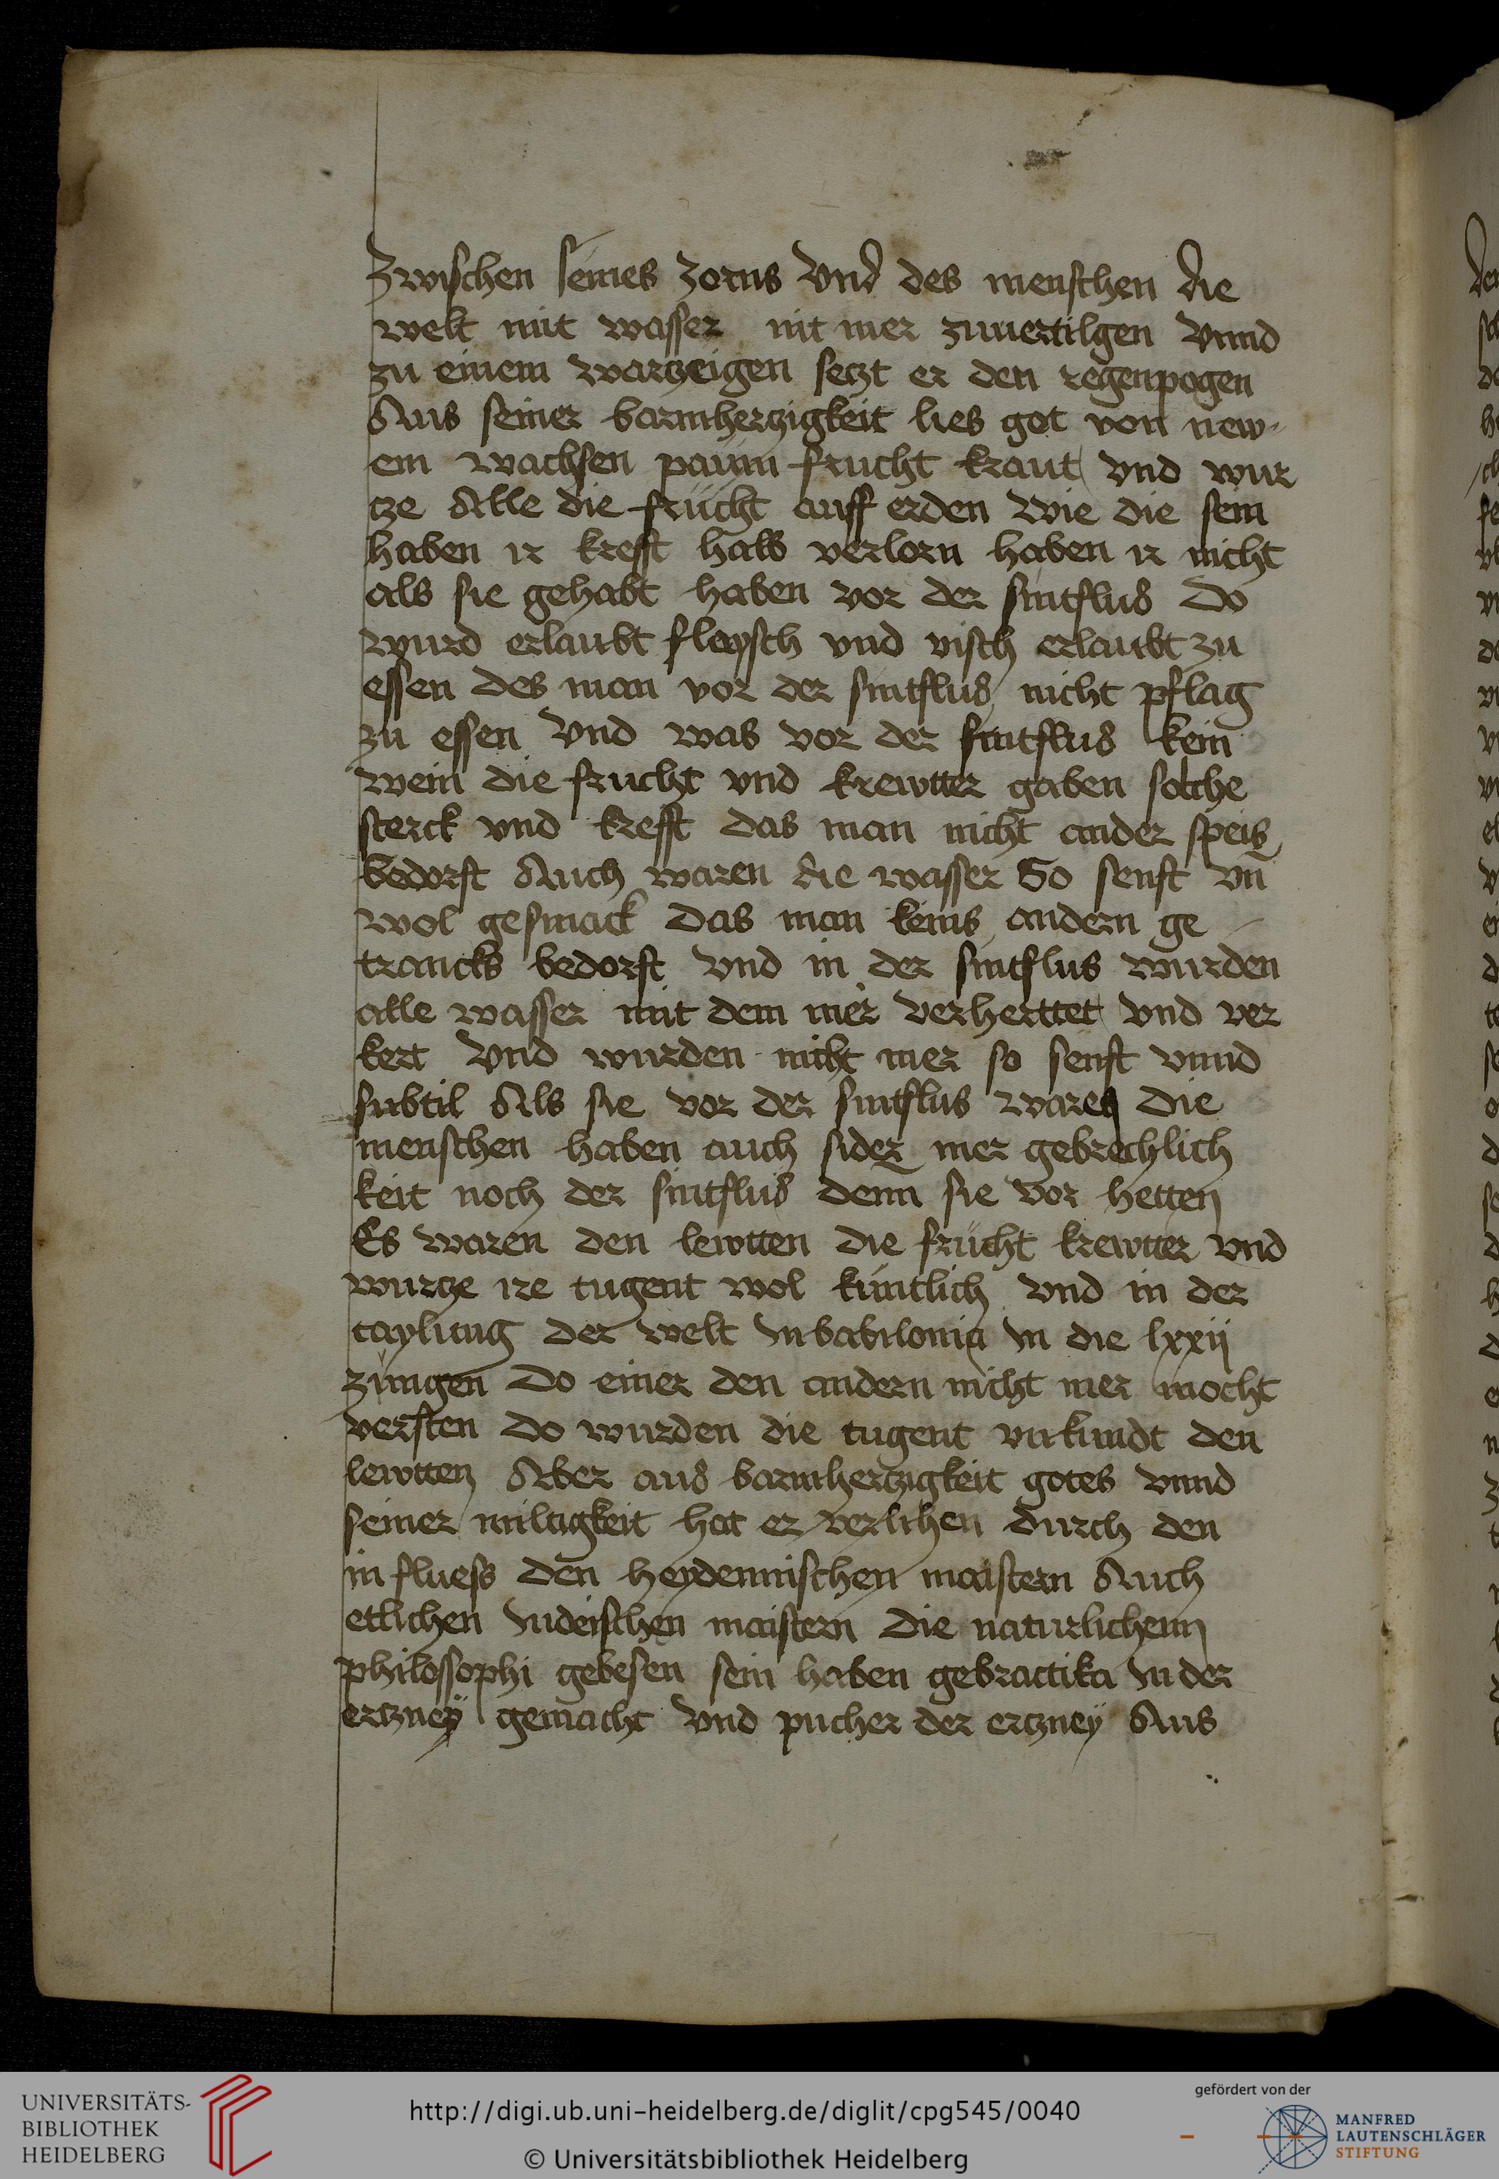 Zwischen seines zorns Vnd des menschen die
welt mit wasser nit mer zuuertilgen Vnnd
zu einem wartzeigen setzt er den regenpogen
Aus seiner barmhertzigkeit lies got von new-
em wachsen paüm frucht kraut vnd wur
tze Alle die früčht auff erden Wie die sein
haben ir krefft halb verlorn haben ir nicht
als sie gehabt haben vor der sintflus Do
wurd erlaubt flaysch vnd visch erlaubt zu
essen des man vor der sintflus nicht pflag
zu essen Vnd was vor der sintflus kein
wein die frucht vnd krewtter gaben solche
sterck vnd krefft das man nicht ander speis
bedorft Auch waren die wasser So senft vn̄
wol gesmack Das man keins andern ge
trancks bedorft Vnd in der sintflus wurden
alle wasser mit dem mer verherttet Vnd ver
kert Vnd wurden nicht mer so senft vnnd
subtil Als sie vor der sintflus waren Die
menschen haben auch sider mer gebrechlich
keit noch der sintflus denn sie vor hetten
Es waren den lewtten die frücht krewtter vnd
wurtze ire tugent wol küntlich Vnd in der
taylung der welt In babilonia In die lxxij
züngen Do einer den andern nicht mer mocht
versten Do wurden die tugent vnkundt den
lewtten Aber aus barmhertzigkeit gotes vnnd
seiner miltigkeit hat er verlihen durch den
in fluess den heydennischen maistern Auch
etlichen Iudeischen maistern Die naturlichenn
philossophi gebesen sein haben gebractika In der
ertzney gemacht Vnd pucher der ertzney Aus
UNIVERSITÄTS-
BIBLIOTHEK
HEIDELBERG
http://digi.ub.uni-heidelberg.de/diglit/cpg545/0040
© Universitätsbibliothek Heidelberg
gefördert von der
MANFRED
LAUTENSCHLÄGER
STIFTUNG